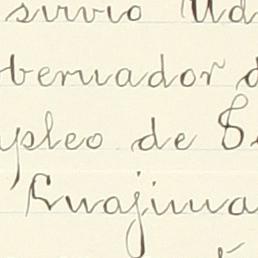 sirvió Ud
bernador d
pleo de S
Cuajima